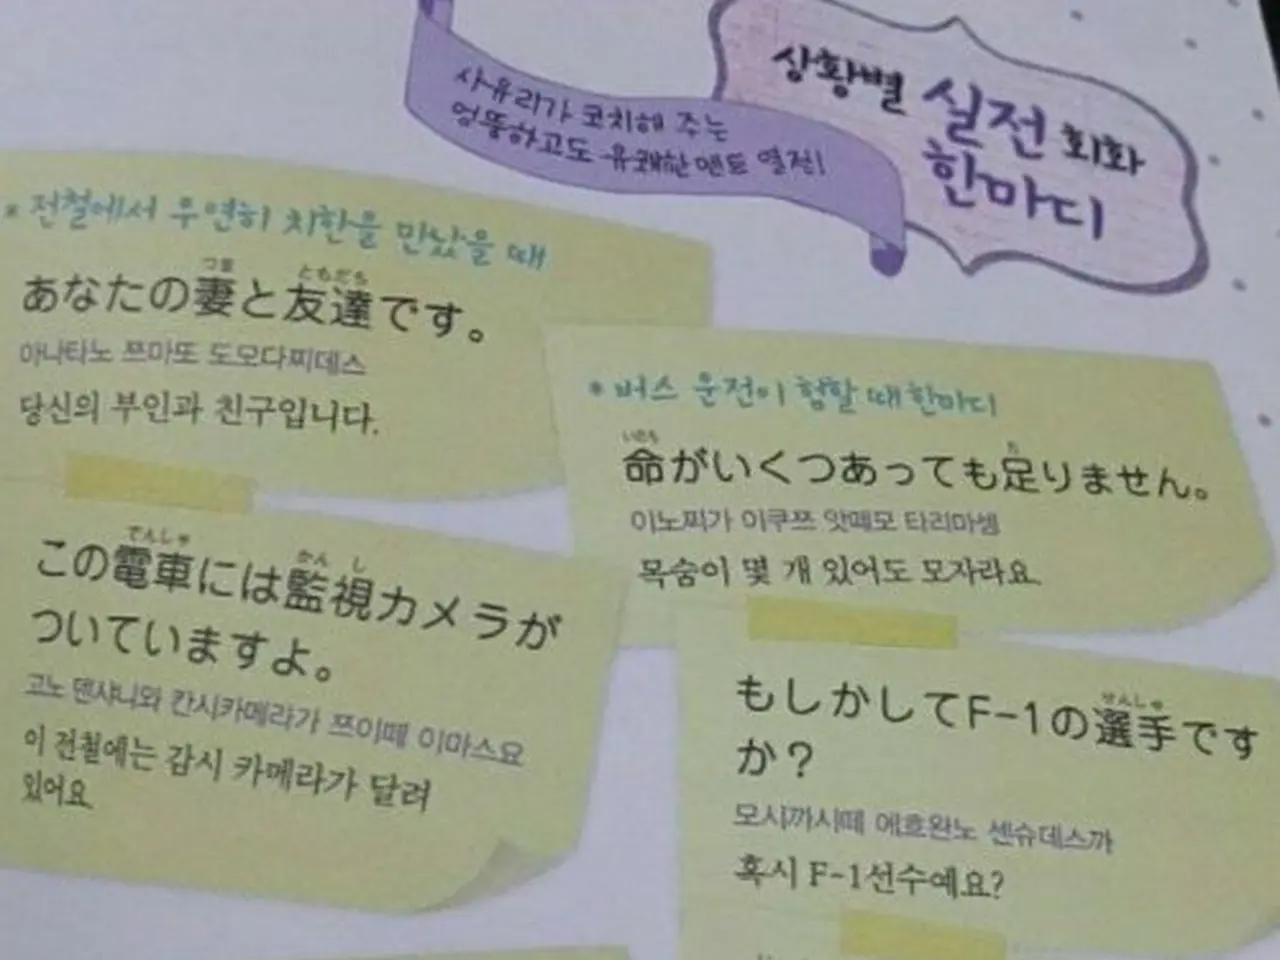 사유리가 코치해 주는
엉뚱하고도 유쾌한 멘트 열전!
상황별 실전 회화
한마디
* 전철에서 우연히 치한을 만났을 때
つま ともだち
あなたの妻と友達です。
아나타노 쯔마또 도모다찌데스
당신의 부인과 친구입니다.
でんしゃ かん し
この電車には監視カメラが
ついていますよ。
고노 덴샤니와 칸시카메라가 쯔이떼 이마스요
이 전철에는 감시 카메라가 달려
있어요.
* 버스 운전이 험할 때 한마디
いのち た
命がいくつあっても足りません。
이노찌가 이쿠쯔 앗떼모 타리마셍
목숨이 몇 개 있어도 모자라요.
せんしゅ
もしかしてF-1の選手です
か？
모시까시떼 에흐완노 센슈데스까
혹시 F-1선수예요?